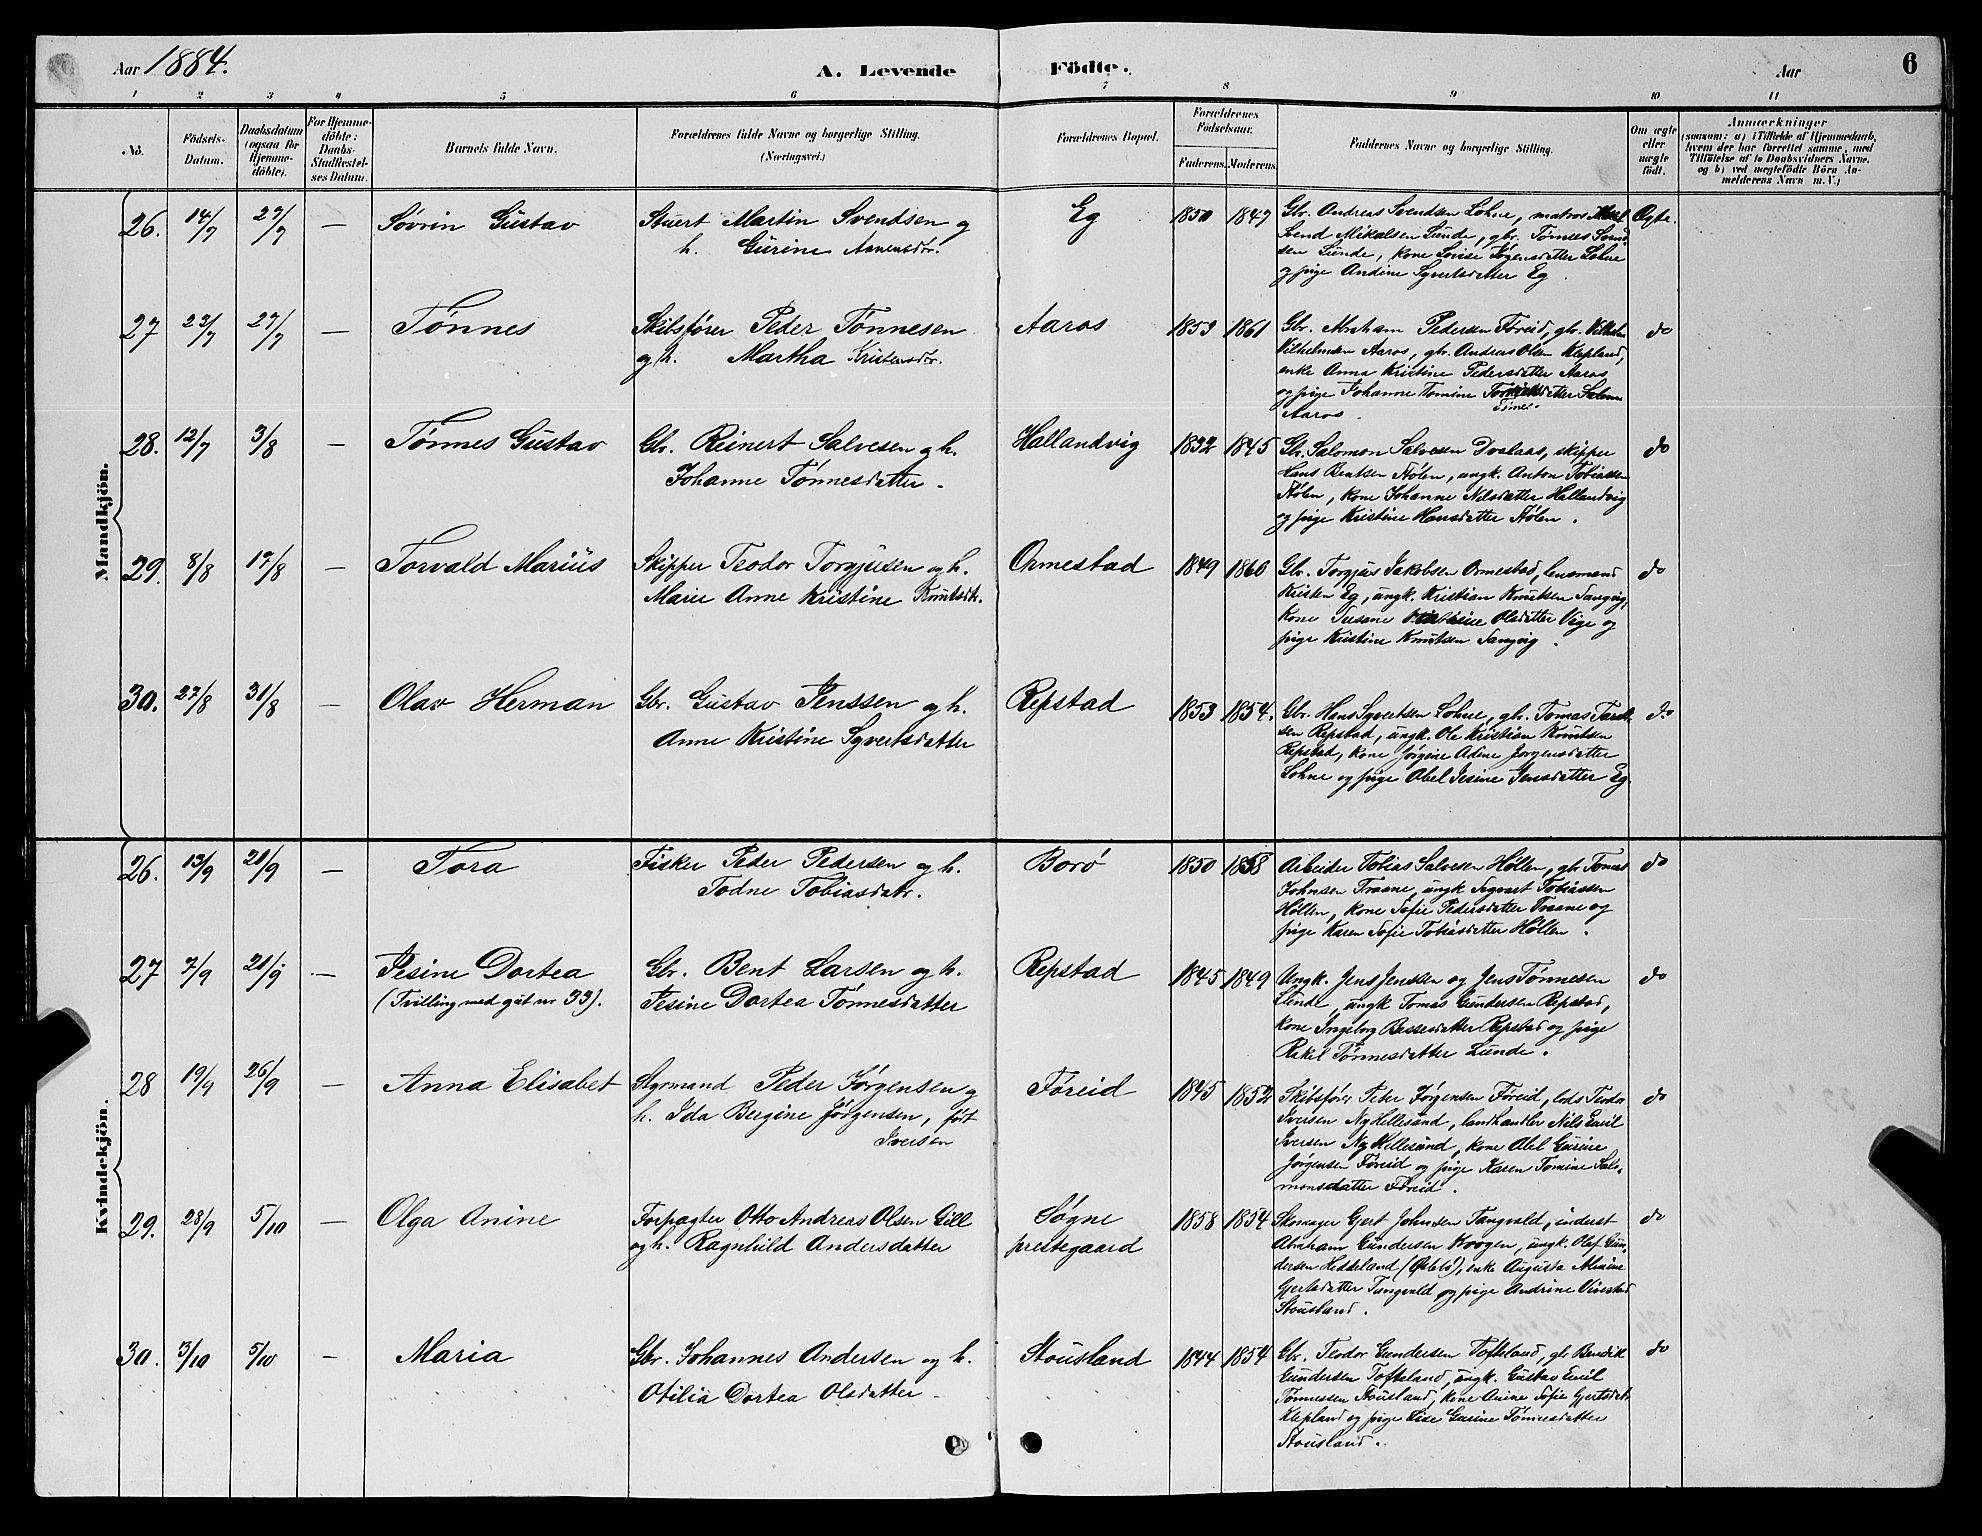 Aar 1884.
A. Levende
Födte.
Aar
6
1 2 3 4 5 6 7 8 9 10 11
No.
Födsels-
Datum.
Daabsdatum
(ogsaa for
Hjemme-
döbte).
For Hjemme-
döbte:
Daabs-
Stadfæstel-
ses Datum.
Barnets fulde Navn.
Forældrenes fulde Navne og borgerlige Stilling.
(Næringsvei.)
Forældrenes Bopæl.
Forældrenes
Födselsaar.
Faderens. Moderens.
Faddernes Navne og borgerlige Stilling.
Om ægte
eller
uægte
födt.
Anmærkninger
(saasom: a) i Tilfælde af Hjemmedaab,
hvem der har forrettet samme, med
Tilföielse af to Daabsvidners Navne.
og b) ved uægtefödte Börn An-
melderens Navn m. V.)
Mandkjön.
26. 14/7 27/7 — Sövrin Gustav
Stuert Martin Svendsen og
h. Gurine Aanensdtr.
Eg 1850 1847
Gbr. Andreas Svendsen Lohne, matros
Svend Mikalsen Lunde, gbr. Tønnes Svend
sen Lunde, kone Lovise Jørgensdatter Lohne
og pige Andine Syvertsdatter Eg.
Ægte.
27 22/7 27/7 — Tønnes
Skibsfører Peder Tønnesen
og h. Martha Kristensdtr.
Aaros 1853 1861
Gbr. Abraham Pedersen Føreid, gbr. Vilhelm
Vilhelmsen Aaros, gbr. Andreas Olsen Klepland,
enke Anna Kristine Pedersdatter Aaros
og pige Johanne Tomine datter Salome
Aaros
do
28. 12/7 3/8 — Tønnes Gustav
Gbr. Reinert Salvesen og h.
Johanne Tønnesdatter.
Hallandvig 1832 1845
Gbr. Salomon Salvesen Dvalaas, skipper
Hans Bentsen Stølen, ungk. Anton Tobiassen
Stølen, kone Johanne Nilsdatter Hallandvig
og pige Kristine Hansdatter Stølen.
do
29. 8/8 17/8 — Torvald Marius
Skipper Teodor Torgjusen og h.
Maren Anne Kristine Knutsdtr.
Ormestad 1849 1860
Gbr. Torgjus Jakobsen Ormestad, lensmand
Kristen Eg, ungk. Kristian Knutsen Tangvig,
kone Susane Olsdatter Vige og
pige Kristine Knutsen Tangvig.
do
30. 27/8 31/8 — Olav Herman
Gbr. Gustav Jenssen og h.
Anne Kristine Syvertsdatter
Repstad 1853 1854.
Gbr. Hans Syvertsen Lohne, gbr. Tomas Tarald
sen Repstad, ungk. Ole Kristian Knutsen
Repstad, kone Jørgine Adine Jørgensdatter
Lohne og pige Abel Jesine Jensdatter Eg.
do
Kvindekjön.
26. 13/9 21/9 — Tora
Fisker Peder Pedersen og h.
Todne Tobiasdatr.
Borø 1850 1858
Arbeider Tobias Salvesen Høllen, gbr. Tomas
Johnsen Traane, ungk Sigvart Tobiassen
Høllen, kone Sofie Pedersdatter Traane og
pige Karen Sofie Tobiasdatter Høllen.
do
27 7/9 21/9 — Jesine Dortea
(Tvilling med gut nr 33).
Gbr. Bent Larsen og h.
Jesine Dortea Tønnesdatter
Repstad 1845 1849
Ungk. Jens Jenssen og Jens Tønnesen
Lunde, ungk Tomas Gundersen Repstad,
kone Ingeborg Bessesdatter Repstad og pige
Rakel Tønnesdatter Lunde.
do
28 19/9 26/9 — Anna Elisabet
Styrmand Peder Jørgensen og
h. Ida Bergine Jørgensen, født
Iversen
Føreid 1845 1852
Skibsfører Peter Jørgensen Føreid, lods Teodor
Iversen Ny Hellesund, landhandler Nils Emil
Iversen Ny Hellesund, kone Abel Gurine
Jørgensen Føreid og pige Karen Tomine Salo-
monsdatter Føreid.
do
29. 28/9 5/10 — Olga Anine
Forpagter Otto Andreas Olsen Gill
og h. Ragnhild Andersdatter
Søgne
prestegaard
1858 1854
Skomager Gjert Johnsen Tangvald, inderst
Abraham Gundersen Krogen, ungk. Olaf Gun-
dersen Heddeland (Øslebø), enke Augusta Minine
Gjertsdatter Tangvald og pige Andrine
Stousland.
do
30. 3/10 5/10 — Maria
Gbr. Johannes Andersen og h.
Otilia Dortea Olsdatter.
Stousland 1844 1854
Gbr. Teodor Gundersen Tofteland, gbr Bendik
Gundersen Tofteland, ungk. Gustav Emil
Tønnessen Stousland, kone Anine Sofie Gjertsdatr
Klepland og pige Lise Gurine Tønnesdatter
Stousland.
do